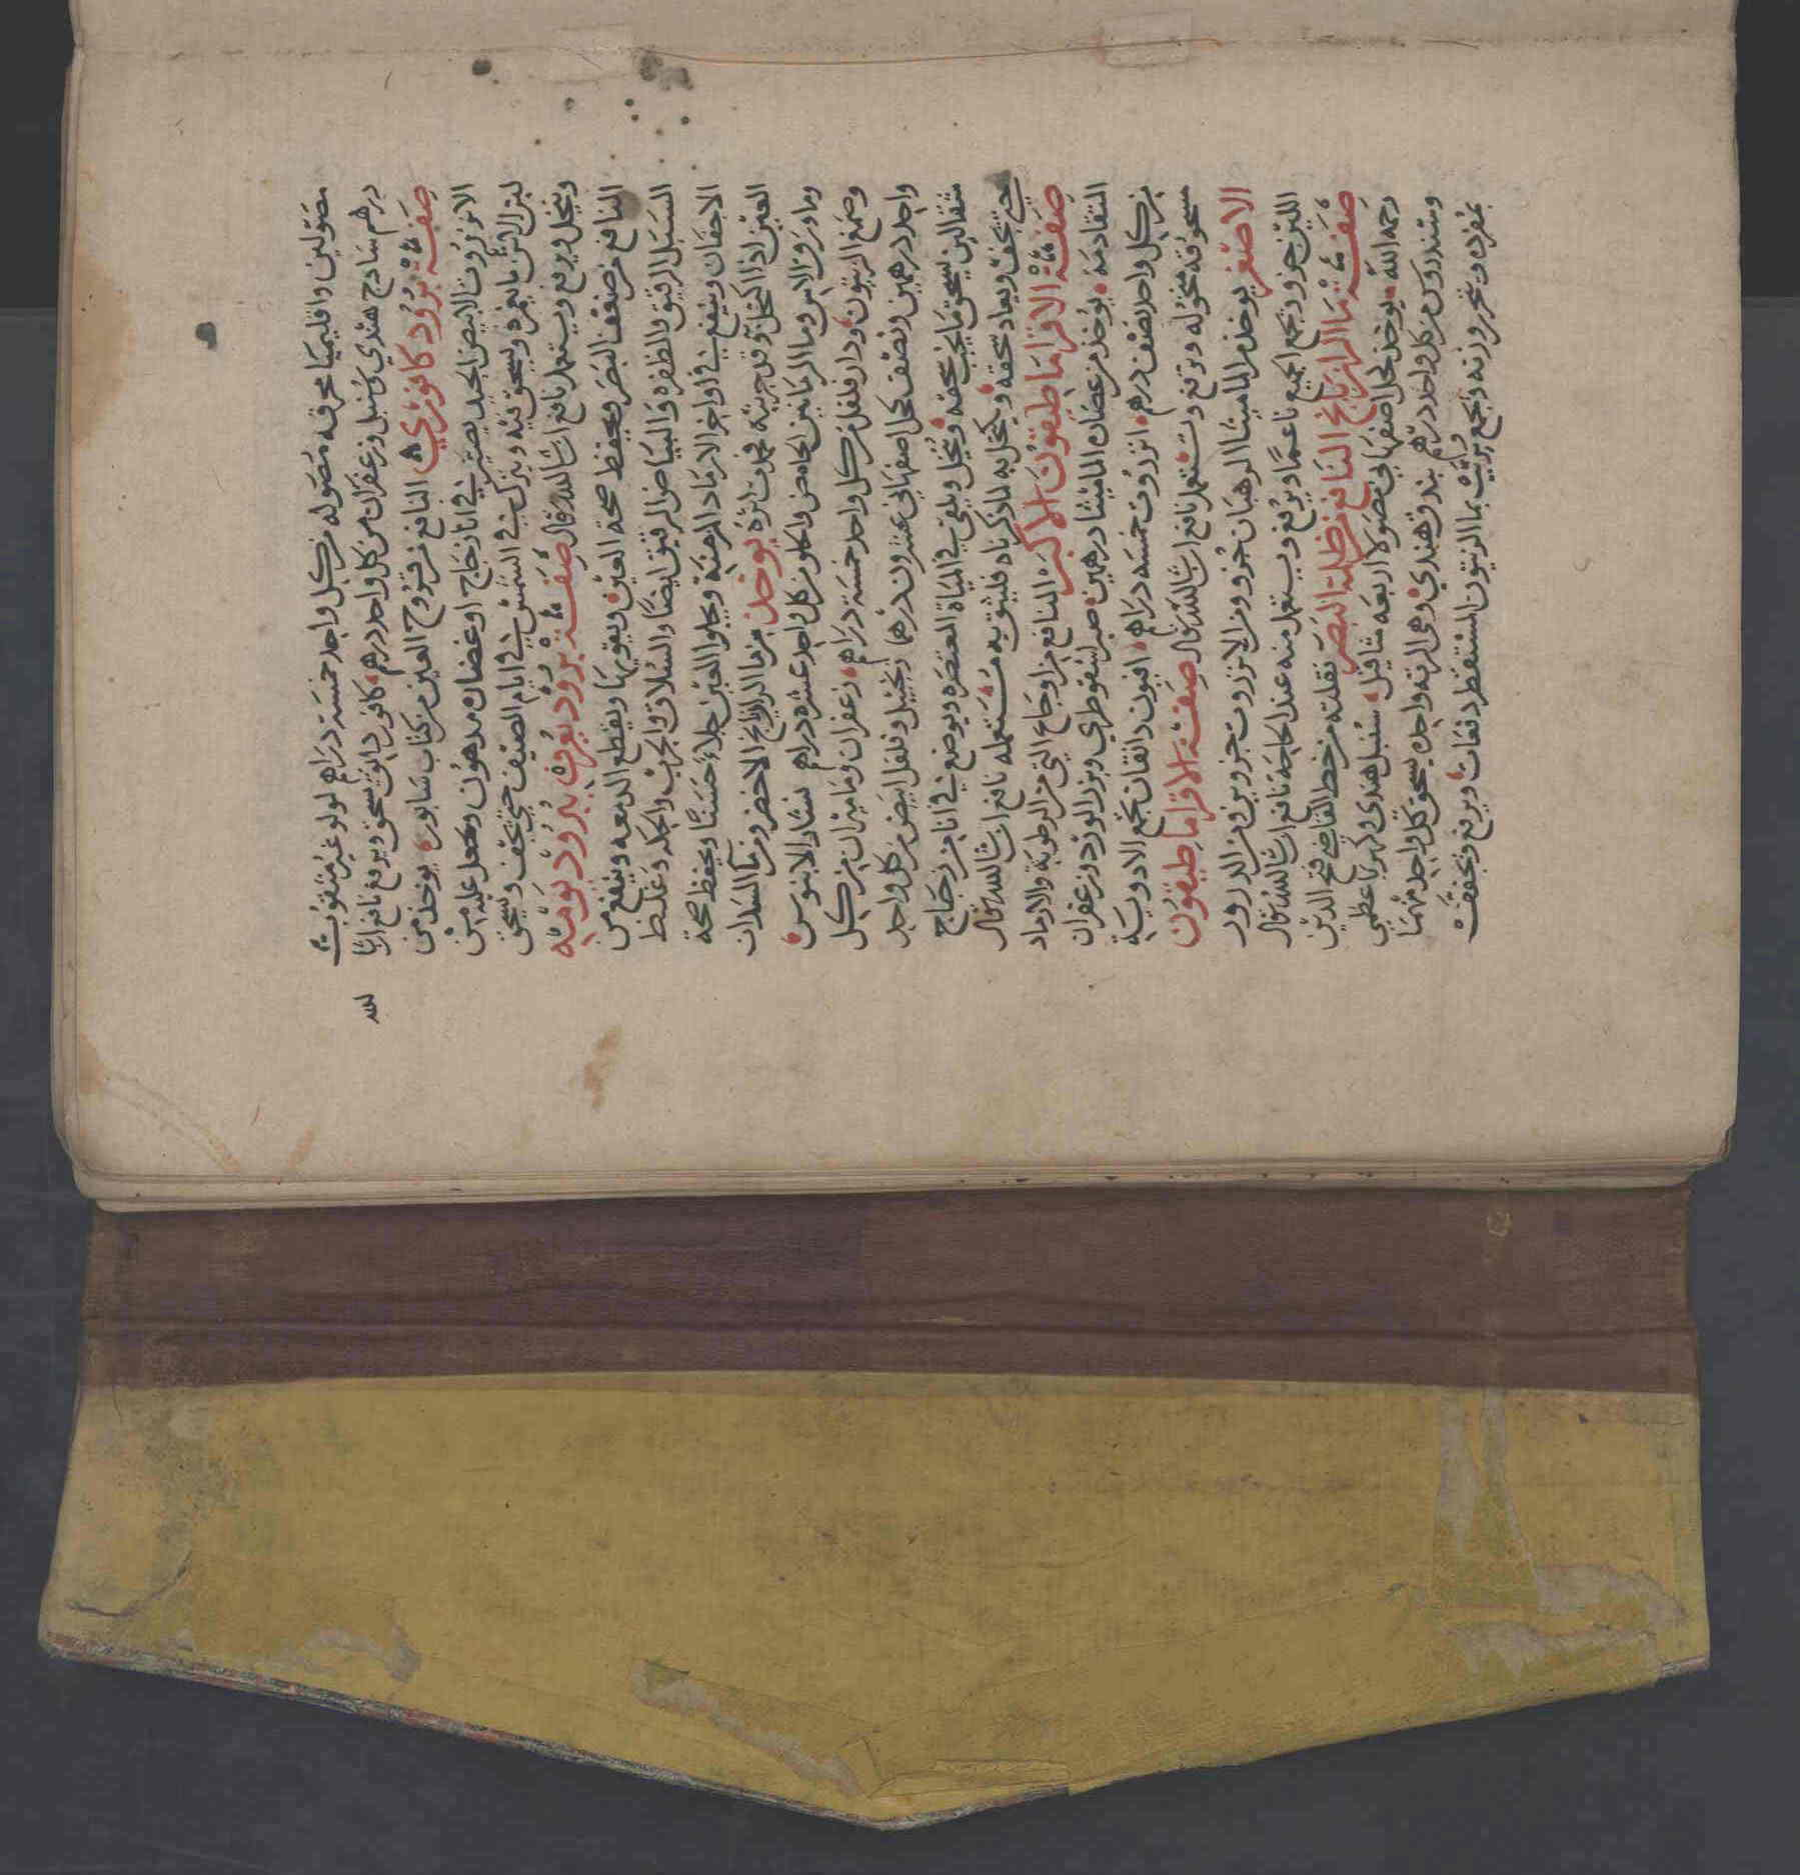 مصولين واقليميا محرقه مصوله من كل واحد خمسة دراهم لولو غير مثقوب
درهم ساذج هندي وسنبل وزعفران من كل واحد درهم كافور دانق يسحق ويرفع نافع ان شا
الله
صفة برود كافوري النافع من قروح العين من كتاب سابور يوخذ من
الانزروت الابيض الجيد يصير في انا زجاج او غضار مدهون ويجعل عليه من
لبن الاتن ما يغمره ويسحق فيه ويترك في الشمس في ايام الصيف حتى يجف ويسحق
وينخل ويرفع ويستعمل نافع ان شا الله تعالى صفة برود يعرف ببرود يومه
النافع من ضعف البصر ويحفظ صحة العين ويقويها ويقطع الدمعه وينفع من
السبل الرقيق والظفره والبياض الرقيق ايضا والسلاق والجرب والحكه وغلظ
الاجفان وينفع في اواخر الارماد المزمنة ويجلوا العين جلاء حسنا ويحفظ صحة
العين اذا اكتحل به وقد جربته فحمدت اثره يوخذ من ما الرازيانج الاخضر ومن ما السداب
وما ورق الاس وما الرمانين الحامض والحلو من كل واحد عشره دراهم نشاره الابنوس
وصمغ الزيتون ودار فلفل من كل واحد خمسة دراهم زعفران وماميران من كل
واحد درهمين ونصف كحل اصفهاني عشرون درهما زنجبيل وفلفل ابيض من كل واحد
مثقالين يسحق ما يجب سحقه وينخل ويلقى في المياه المعتصره ويوضع في انا من زجاج
حتى يجف ويعاد سحقه ويكحل به لما ذكرناه فليثق به مستعمله نافع ان شا الله تعالى
صفة الاقراماطيقون الاكبر النافع من اوجاع التي من الرطوبة والارماد
المتقادمة يوخذ من عصارة الماميثا درهمين صبر اسقوطري وبزر الورد وزعفران
من كل واحد نصف درهم انزروت خمسه دراهم افيون دانقان تجمع الادوية
مسحوقه منخوله وترفع وتستعمل نافع ان شا الله تعالى صفة الاقراماطيقون
الاصغر يوخذ من الماميثا الرهبان جزو ومن الانزروت جزوين ومن الذرور
اللين جزو تجمع الجميع ناعما ويرفع ويستعمل منه عند الحاجة نافع ان شا الله تعالى
صفة ما الرازيانج النافع من ظلمة البصر نقلته من خط القاضي فتح الدين
رحمه الله يوخذ كحل اصفهاني مصولا اربعه مثاقيل سنبل هندي وكهربا عظمي
وسندروس من كل واحد درهم بندق هندي وهي الرته واحده يسحق كل واحد منهما
بمفرده ويحرر وزنه ويجمع ويربب بما الزيتون المستقطر دفعات ويرفع ويجفف